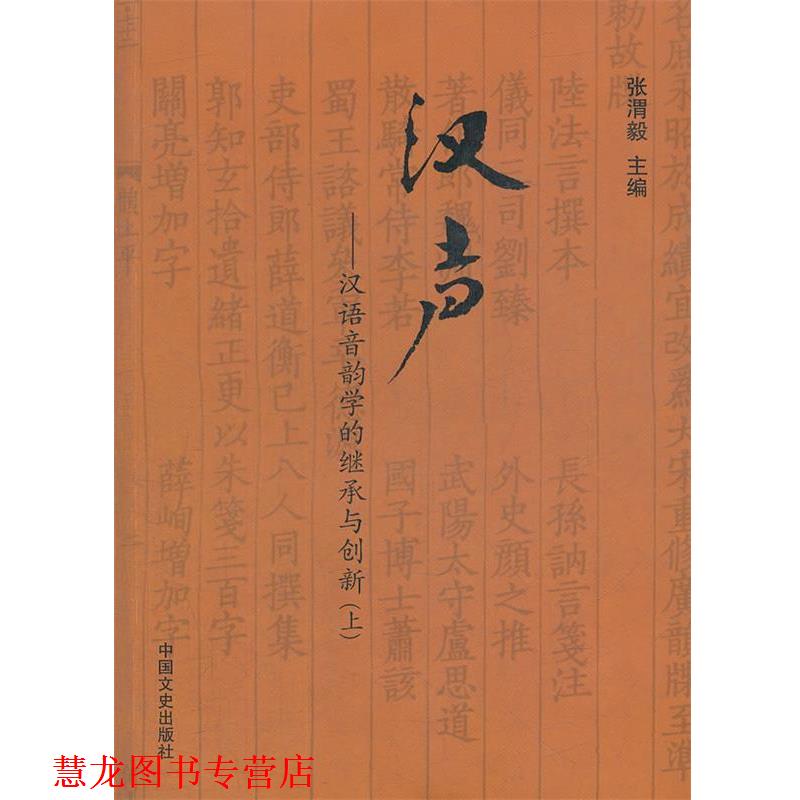 名庶永昭於成績宜改為大宋重修廣韻牒至準
勅故牒
陸法言撰本 長孫訥言箋注
儀同三司劉臻 外史顏之推
著 郎魏 武陽太守盧思道
散騎常侍李若 國子博士蕭該
蜀王諮議
吏部侍郎薛道衡已上八人同撰集
郭知玄拾遺緒正更以朱箋三百字
關亮增加字 薛峋增加字
张渭毅 主编
汉声
——汉语音韵学的继承与创新(上)
中国文史出版社
慧龙图书专营店